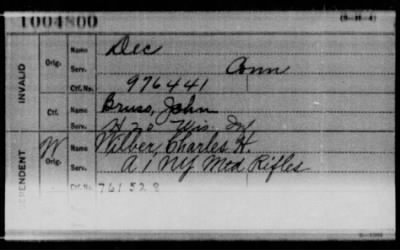 1004800 (3-H-4)
Name Dec
INVALID Orig. Serv. Conn
Ctf. No. 976441
Ctf. Name Bruss, John
Serv. H 20 Wis. Inf
W Orig. Name Wilber, Charles H.
Serv. A 1 NY Mtd Rifles
Ctf. No. 761528